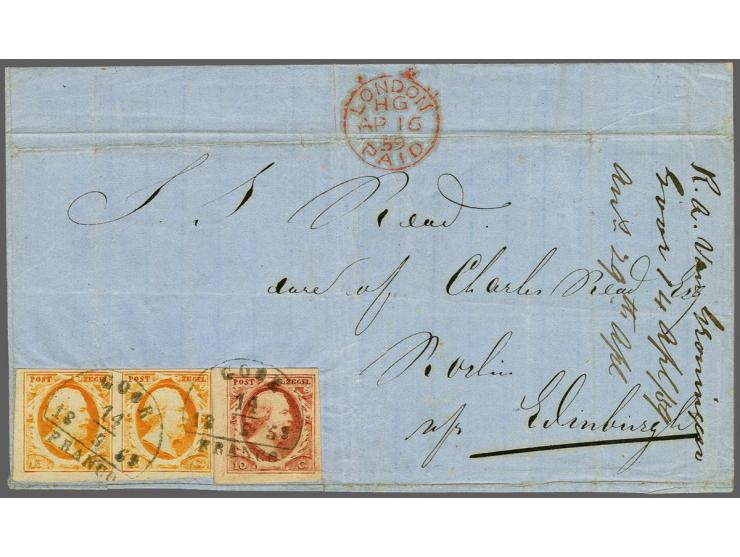 LONDON
HG
AP 16
59
PAID
Read
care of Charles Read Esq
Roslin
Edinburgh
R. A. Van Groningen
Goor 14 Apl /59
Ans 29th Apl
POST ZEGEL
POST ZEGEL
POST ZEGEL
10 C.
GOOR
14
18 59
FRANCO
GOOR
18 59
FRANCO